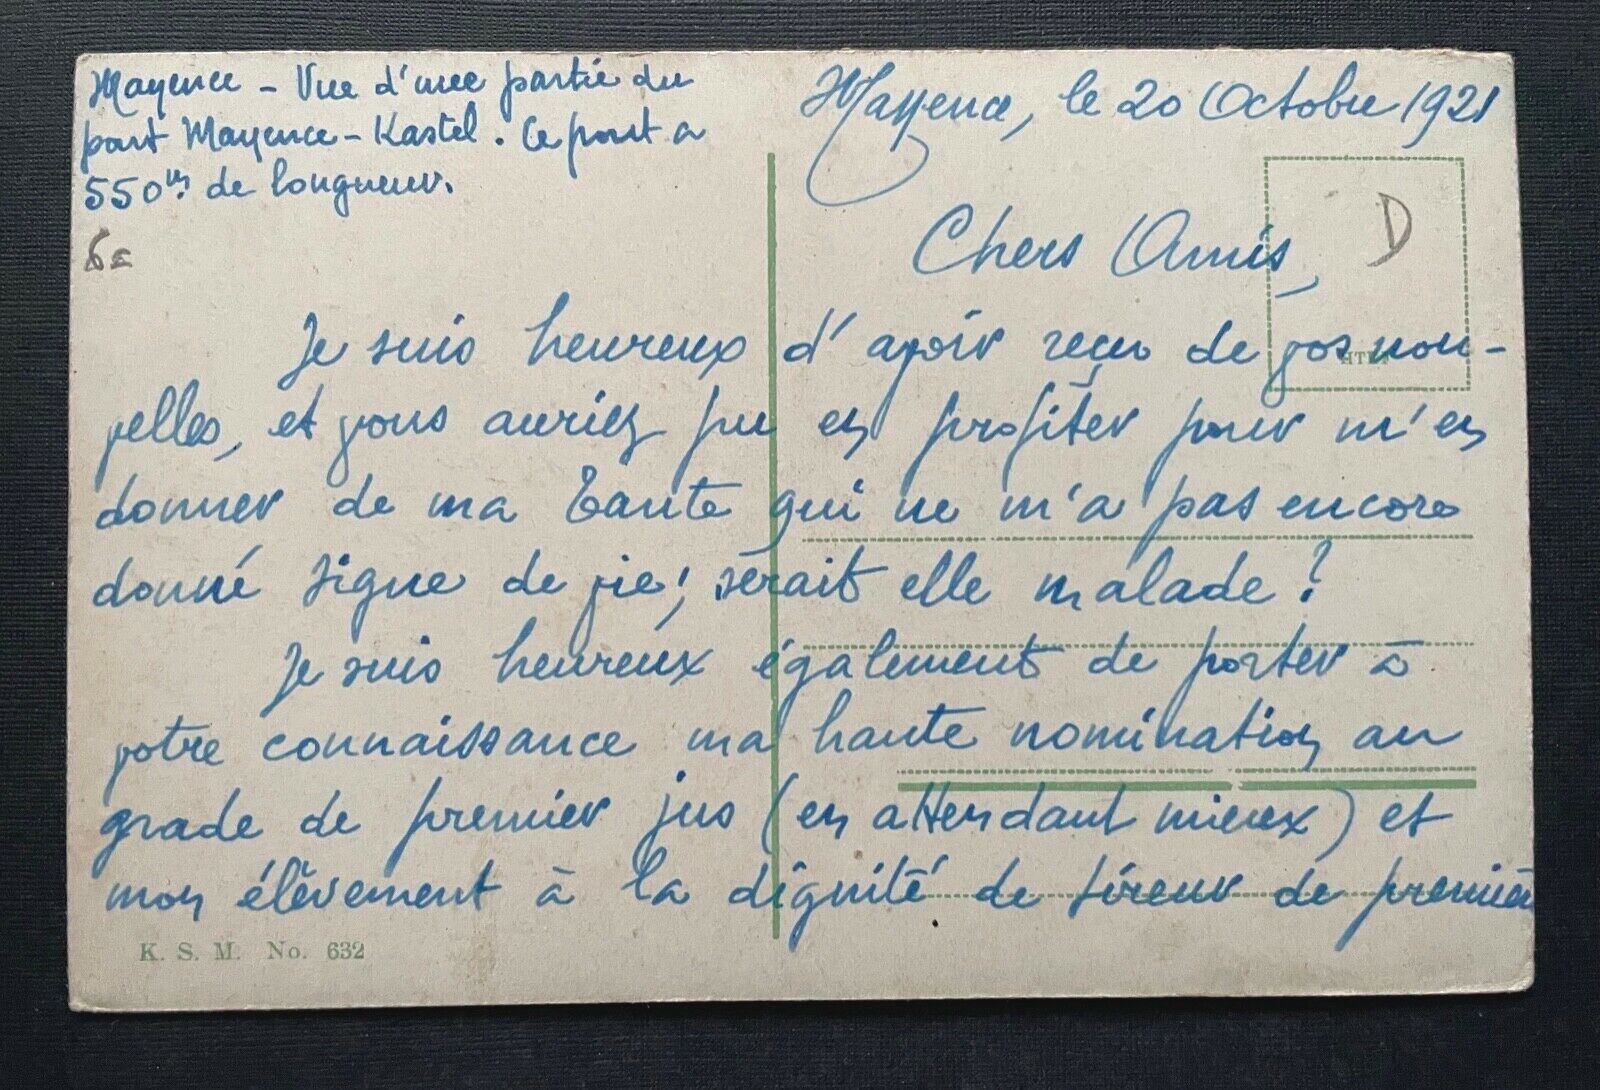 Mayence - Vue d'une partie du
pont Mayence - Kastel. Ce pont a
550m de longueur.
Mayence, le 20 Octobre 1921
D
Chers Amis,
Je suis heureux d'avoir reçu de vos nou-
velles, et vous auriez pu en profiter pour m'en
donner de ma Tante qui ne m'a pas encore
donné signe de vie! serait elle malade?
Je suis heureux également de porter à
votre connaissance ma haute nomination au
grade de premier jus (en attendant mieux) et
mon élèvement à la dignité de tireur de première
K. S. M. No. 632